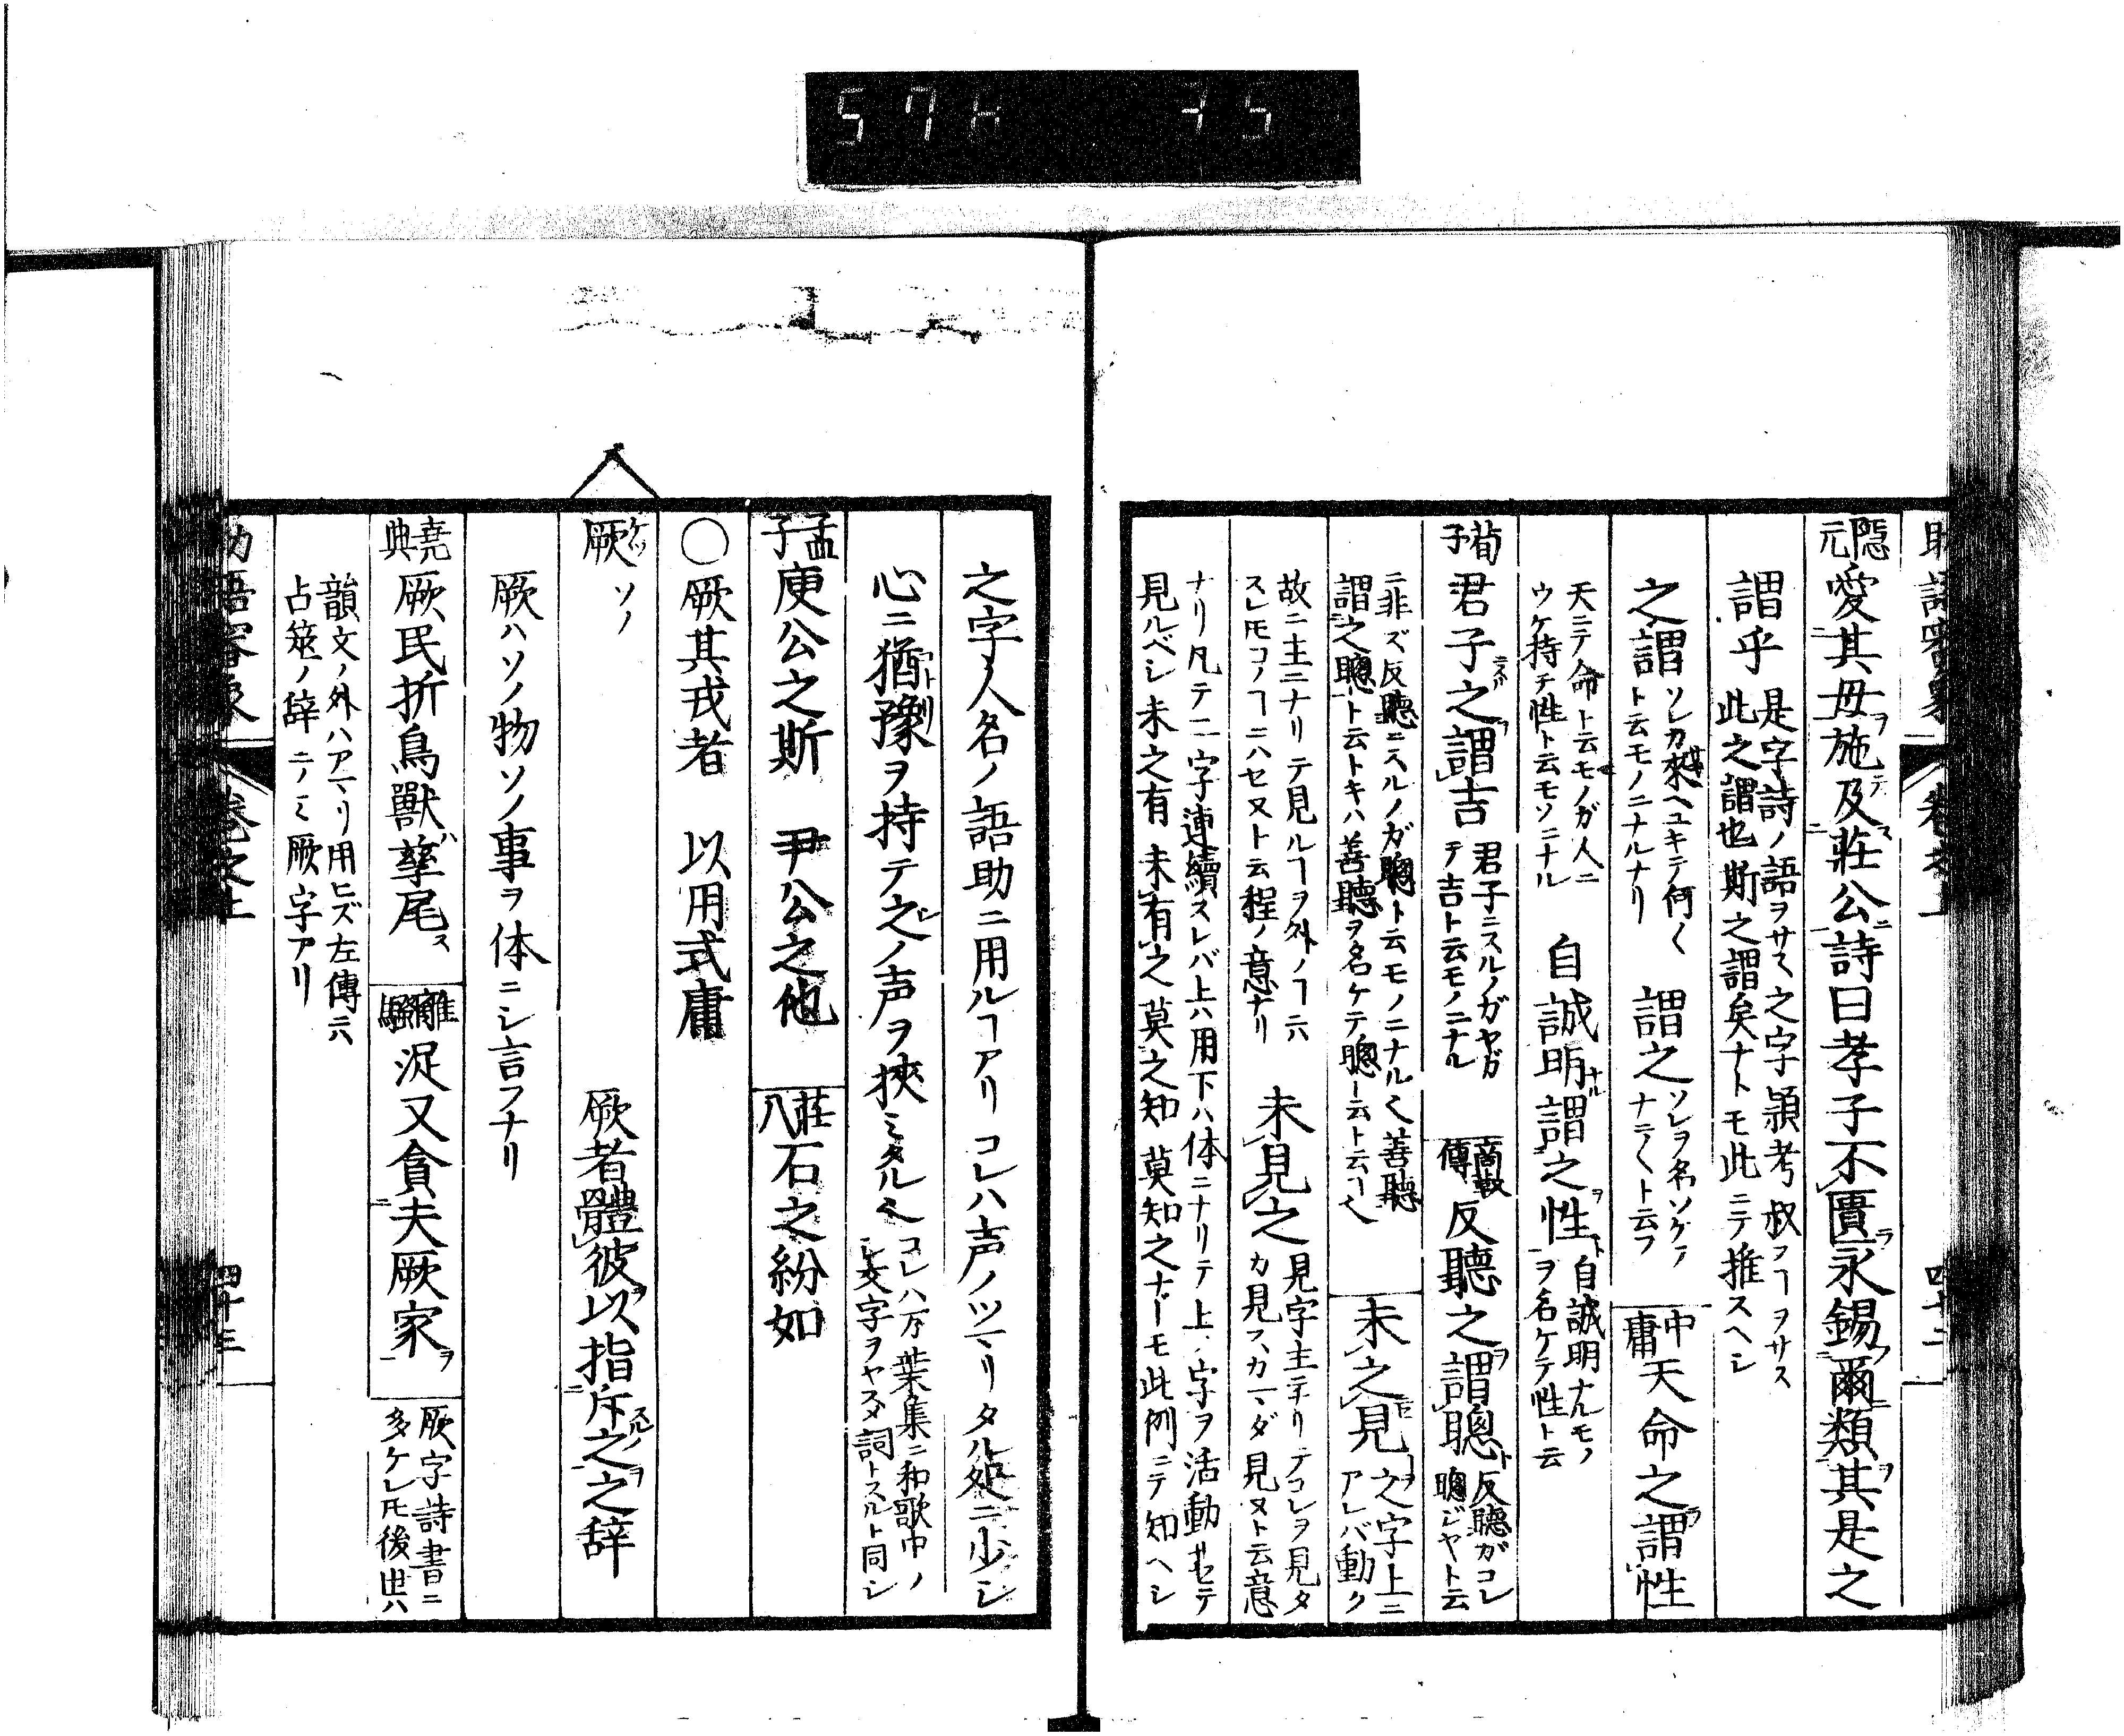 隱元愛其母施及莊公詩曰孝子不匱永錫爾類其是之
謂乎是字詩ノ語ヲサス之字穎考叔ヲサス
此之謂也斯之謂矣ナトモ此ニテ推スヘシ
之謂
ト云モノニナルナリ
謂之ソレヲ名ツケテ
ナニ〱ト云フ
中庸天命之謂性
天ニテ命ト云モノガ人ニ
ウケ持チ性ト云モノニナル
自誠明謂之性自誠明ナルモノ
ヲ名ケテ性ト云
荀子君子之謂吉君子ニスルノガヤガ
テ吉ト云モノニナル
商鞅傳反聽之謂聰反聽ガコレ
聰ジヤト云
ニ非ズ反聽ニスルノガ聰ト云モノニナル〱善聽
謂之聰ト云トキハ善聽ヲ名ケテ聰ト云ト云ヿ〱
未之見之字上ニ
アレバ動ク
故ニ主ニナリテ見ルヿヲ外ノヿニハ
スレ𪜈コノヿニハセヌト云程ノ意ナリ
未見之見字主ニナリテコレヲ見タ
カ見ヌカマダ見ヌト云意
ナリ凡テ二字連續スレバ上ハ用下ハ体ニナリテ上ノ字ヲ活動サセテ
見ルベシ未之有未有之莫之知莫知之ナドモ此例ニテ知ヘシ
助語審象 卷之上 四十二
之字人名ノ語助ニ用ルヿアリコレハ声ノツマリタル処ニ少シ
心ニ猶豫ヲ持テ之ノ声ヲ挾ミタル〱コレハ万葉集ニ和歌中ノ
文字ヲヤスメ詞トスルト同シ
孟子庾公之斯 尹公之他 莊八石之紛如
○厥其戎者 以用式庸
厥ケツ ソノ 厥者體彼以指斥之之辞
厥ハソノ物ソノ事ヲ体ニシ言フナリ
堯典厥民折鳥獸孳尾 離騷浞又貪夫厥家厥字詩書ニ
多ケレ𪜈後世ハ
韻文ノ外ハアマリ用ヒズ左傳ニハ
占筮ノ辞ニノミ厥字アリ
助語審象 卷之上 四十三